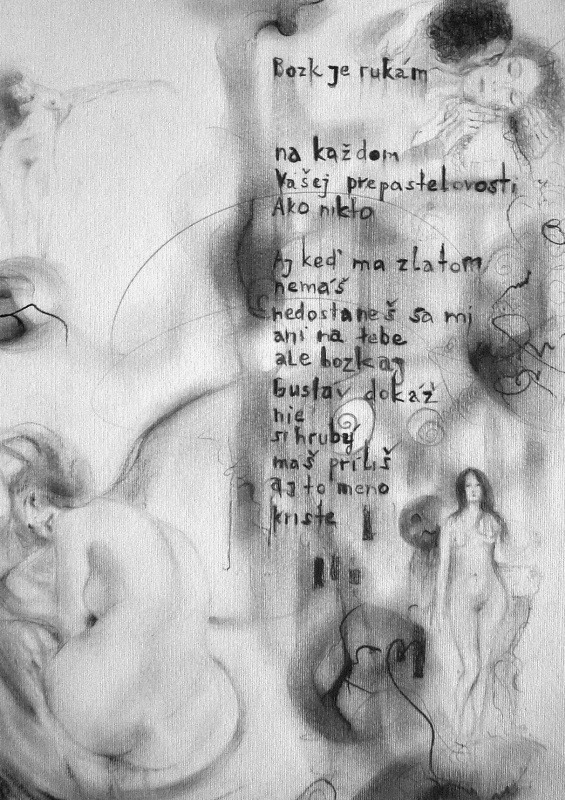 Bozk je rukám
na každom
Vašej prepastelovosti
Ako nikto
Aj keď ma zlatom
nemáš
nedostaneš sa mi
ani na tebe
ale bozkaj
Gustáv dokáž
nie
si hrubý
maš príliš
aj to meno
kriste